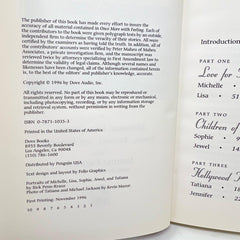 The publisher of this book has made every effort to insure the
accuracy of all material contained in Once More with Feeling. Each of
the contributors to the book were given polygraph tests by an outside,
independent firm to determine the veracity of their stories. All were
certified by the examiners as having told the truth. In addition, all of
the contributors' accounts were verified by Peter Mishes of Mishes
Associates, a private investigation firm, and the manuscript was
reviewed twice by attorneys specializing in First Amendment law to
determine the validity of legal claims. Although several names and
likenesses have been changed, all of the information contained herein
is, to the best of the editors' and publisher's knowledge, accurate.
Copyright © 1996 by Dove Audio, Inc.
All rights reserved. No part of this book may be reproduced or
transmitted in any form or by any means, electronic or mechanical,
including photocopying, recording, or by any information storage
and retrieval system, without permission in writing from the
publisher.
ISBN 0-7871-1035-3
Printed in the United States of America
Dove Books
8955 Beverly Boulevard
Los Angeles, CA 90048
(310) 786-1600
Distributed by Penguin USA
Text design and layout by Folio Graphics
Portraits of Michelle, Lisa, Sophie, Jewel, and Tatiana
by Rick Penn-Kraus
Photo of Tatiana and Michael Jackson by Kevin Mazur
First Printing: November 1996
10 9 8 7 6 5 4 3 2 1
Introduction
PART ONE
Love for
Michelle
Lisa • 5
PART TWO
Children of
Sophie
Jewel • 14
PART THREE
Hollywood
Tatiana • 18
Jennifer • 22